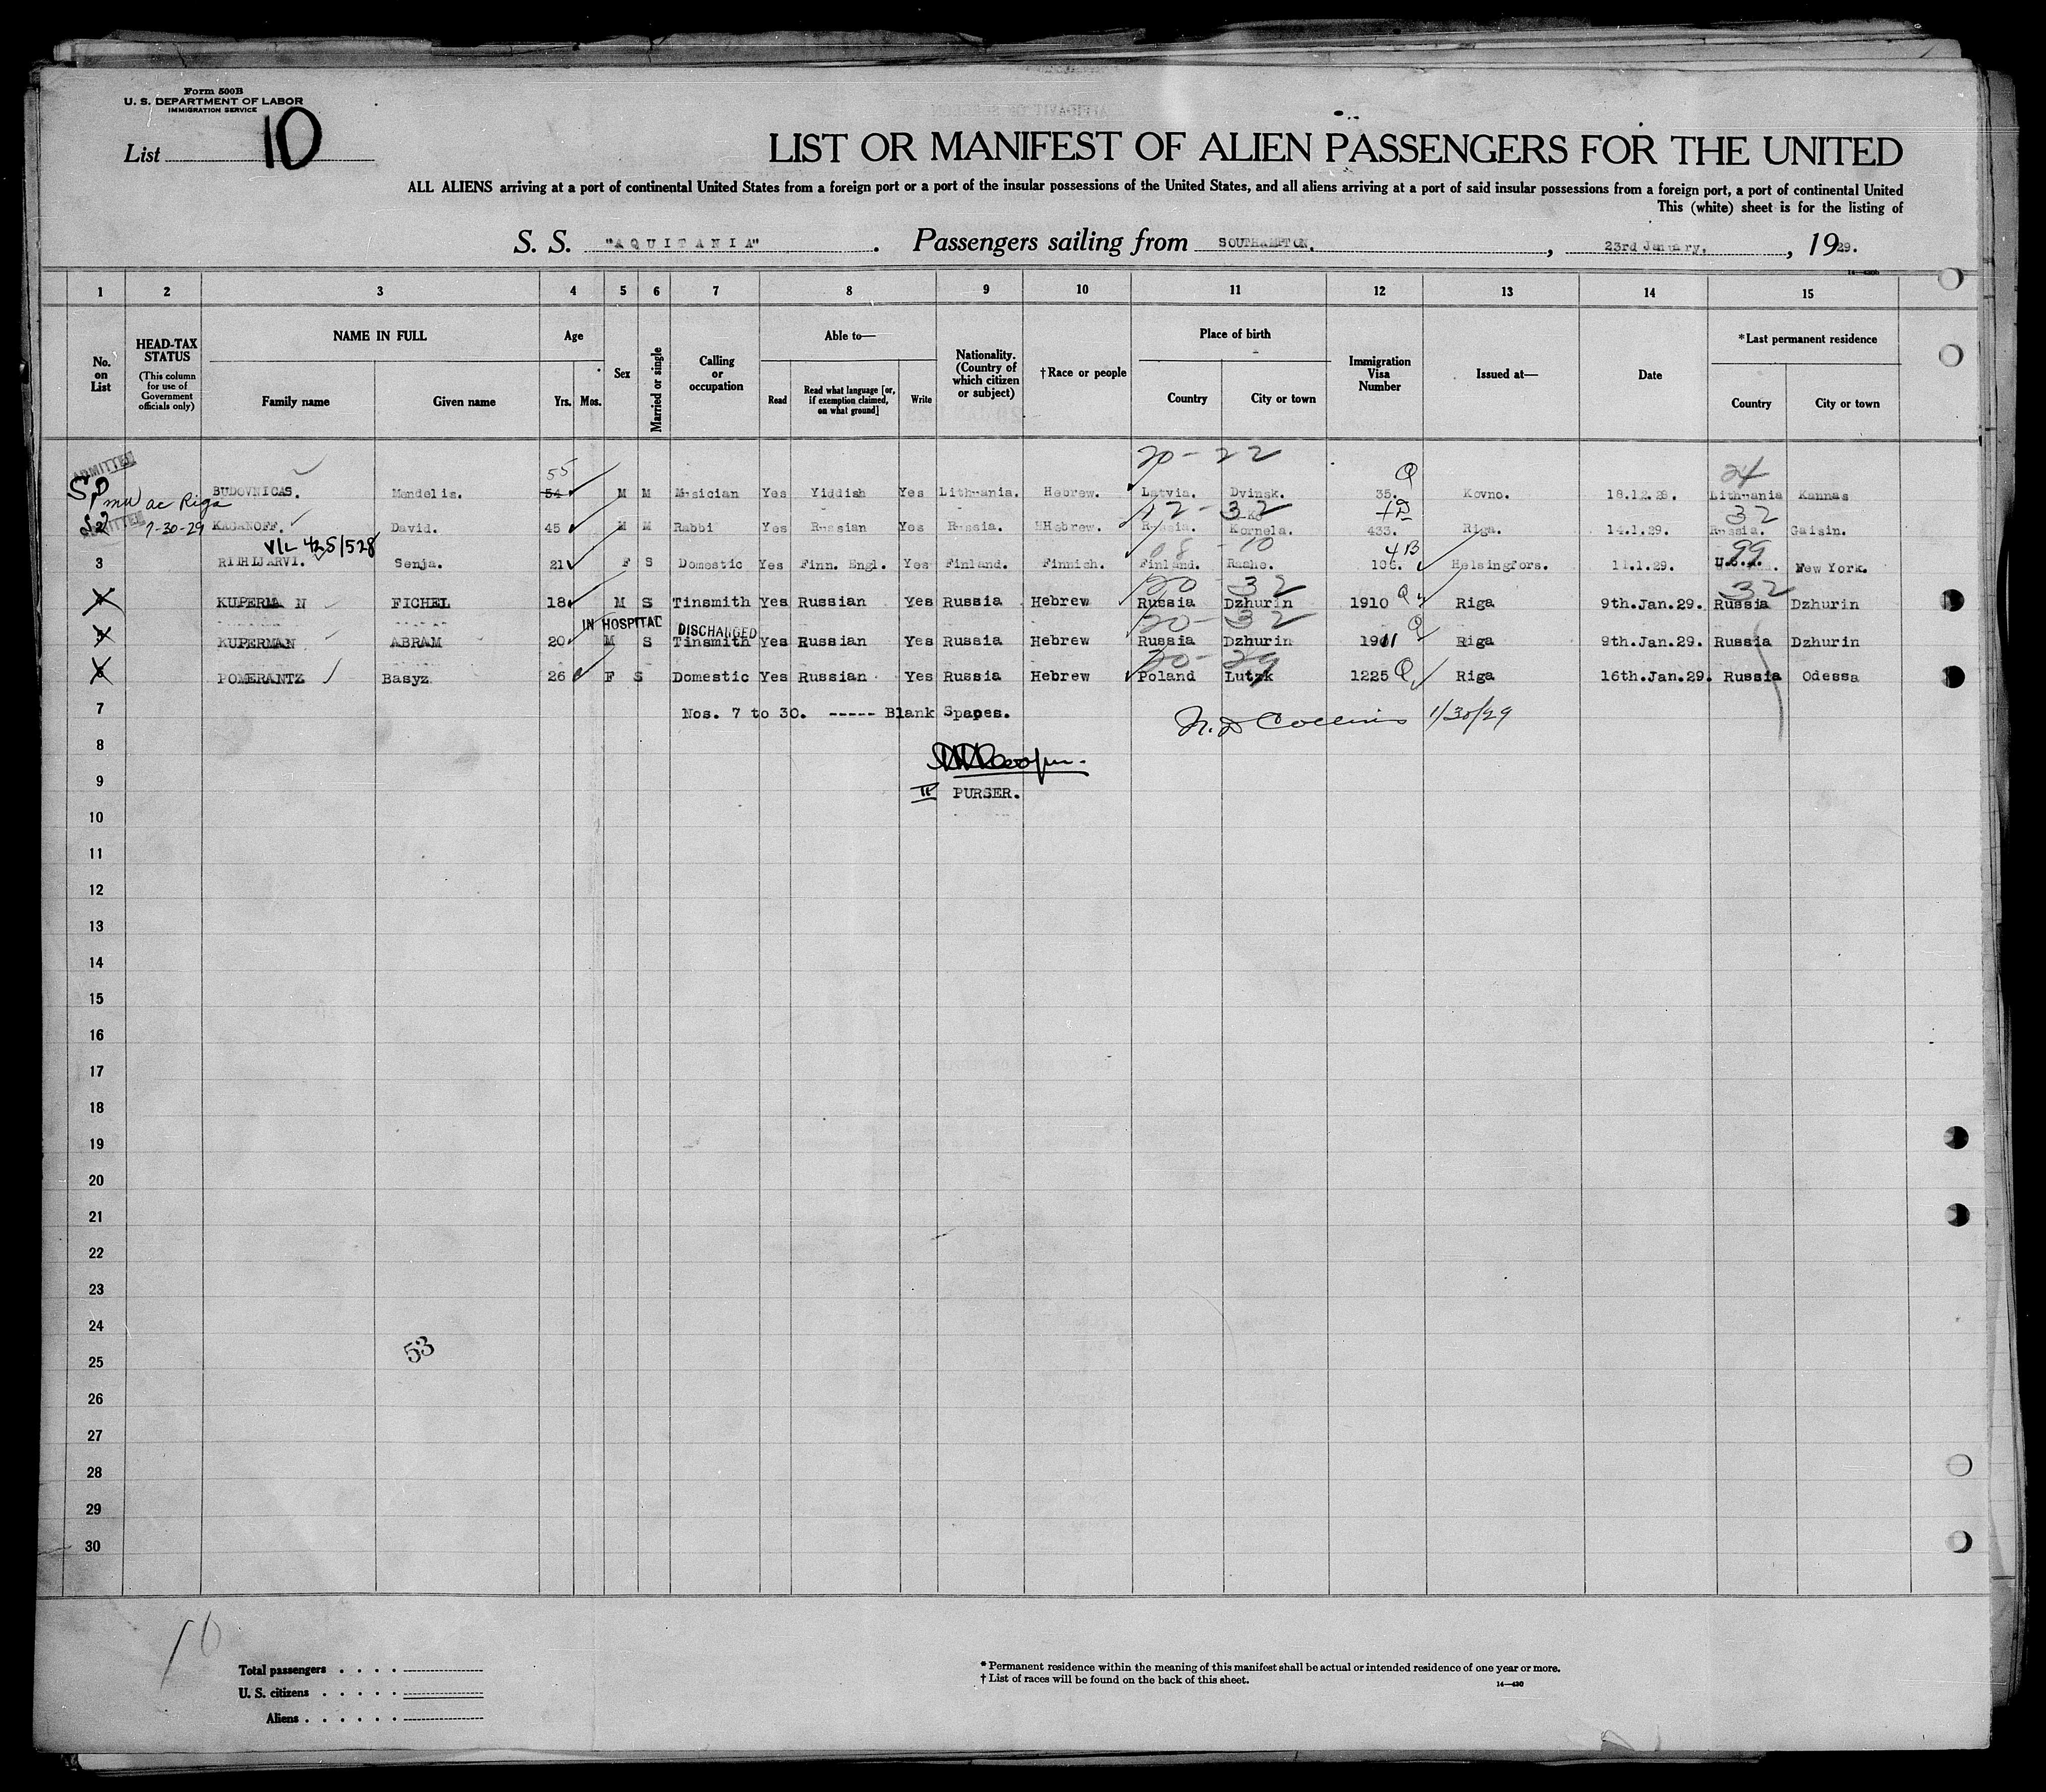 Form 500B
U. S. DEPARTMENT OF LABOR
IMMIGRATION SERVICE
List 10
LIST OR MANIFEST OF ALIEN PASSENGERS FOR THE UNITED
ALL ALIENS arriving at a port of continental United States from a foreign port or a port of the insular possessions of the United States, and all aliens arriving at a port of said insular possessions from a foreign port, a port of continental United
This (white) sheet is for the listing of
S. S. "AQUITANIA" . Passengers sailing from SOUTHAMPTON. , 23rd January, , 1929.
1 2 3 4 5 6 7 8 9 10 11 12 13 14 15
No. on List
HEAD-TAX STATUS
(This column for use of Government officials only)
NAME IN FULL
Family name Given name
Age
Yrs. Mos.
Sex
Married or single
Calling or occupation
Able to—
Read Read what language [or, if exemption claimed, on what ground] Write
Nationality. (Country of which citizen or subject)
†Race or people
Place of birth
Country City or town
Immigration Visa Number
Issued at—
Date
*Last permanent residence
Country City or town
20 - 22
ADMITTED 55 Q 24
BUDOVNICAS. Mendelis. 54 M M Musician Yes Yiddish Yes Lithuania. Hebrew. Latvia. Dvinsk. 35. Kovno. 18.12.28. Lithuania Kannas
ac Riga
12 - 32 32
ADMITTED
2 1-30-29 KAGANOFF. David. 45 M M Rabbi Yes Russian Yes Russia. HHebrew. Russia. Kornela. 433. Riga. 14.1.29. Russia. Gaisin.
V/L 425/528 08 - 10 4B 99
3 RIIHIJARVI. Senja. 21 F S Domestic Yes Finn. Engl. Yes Finland. Finnich. Finland. Raahe. 106. Helsingfors. 11.1.29. U.S.A. New York.
20 - 32 32
4 KUPERMAN FICHEL 18 M S Tinsmith Yes Russian Yes Russia Hebrew Russia Dzhurin 1910 Q Riga 9th.Jan.29. Russia Dzhurin
IN HOSPITAL DISCHARGED 20 - 32 Q
5 KUPERMAN ABRAM 20 M S Tinsmith Yes Russian Yes Russia Hebrew Russia Dzhurin 1911 Riga 9th.Jan.29. Russia Dzhurin
20 - 29
6 POMERANTZ Basyz 26 F S Domestic Yes Russian Yes Russia Hebrew Poland Lutzk 1225 Q Riga 16th.Jan.29. Russia Odessa
7 Nos. 7 to 30. ----- Blank Spaces. Collins 1/30/29
8
9
II PURSER.
10
11
12
13
14
15
16
17
18
19
20
21
22
23
24
53
25
26
27
28
29
30
10
Total passengers
U. S. citizens
Aliens
* Permanent residence within the meaning of this manifest shall be actual or intended residence of one year or more.
† List of races will be found on the back of this sheet.
14—430